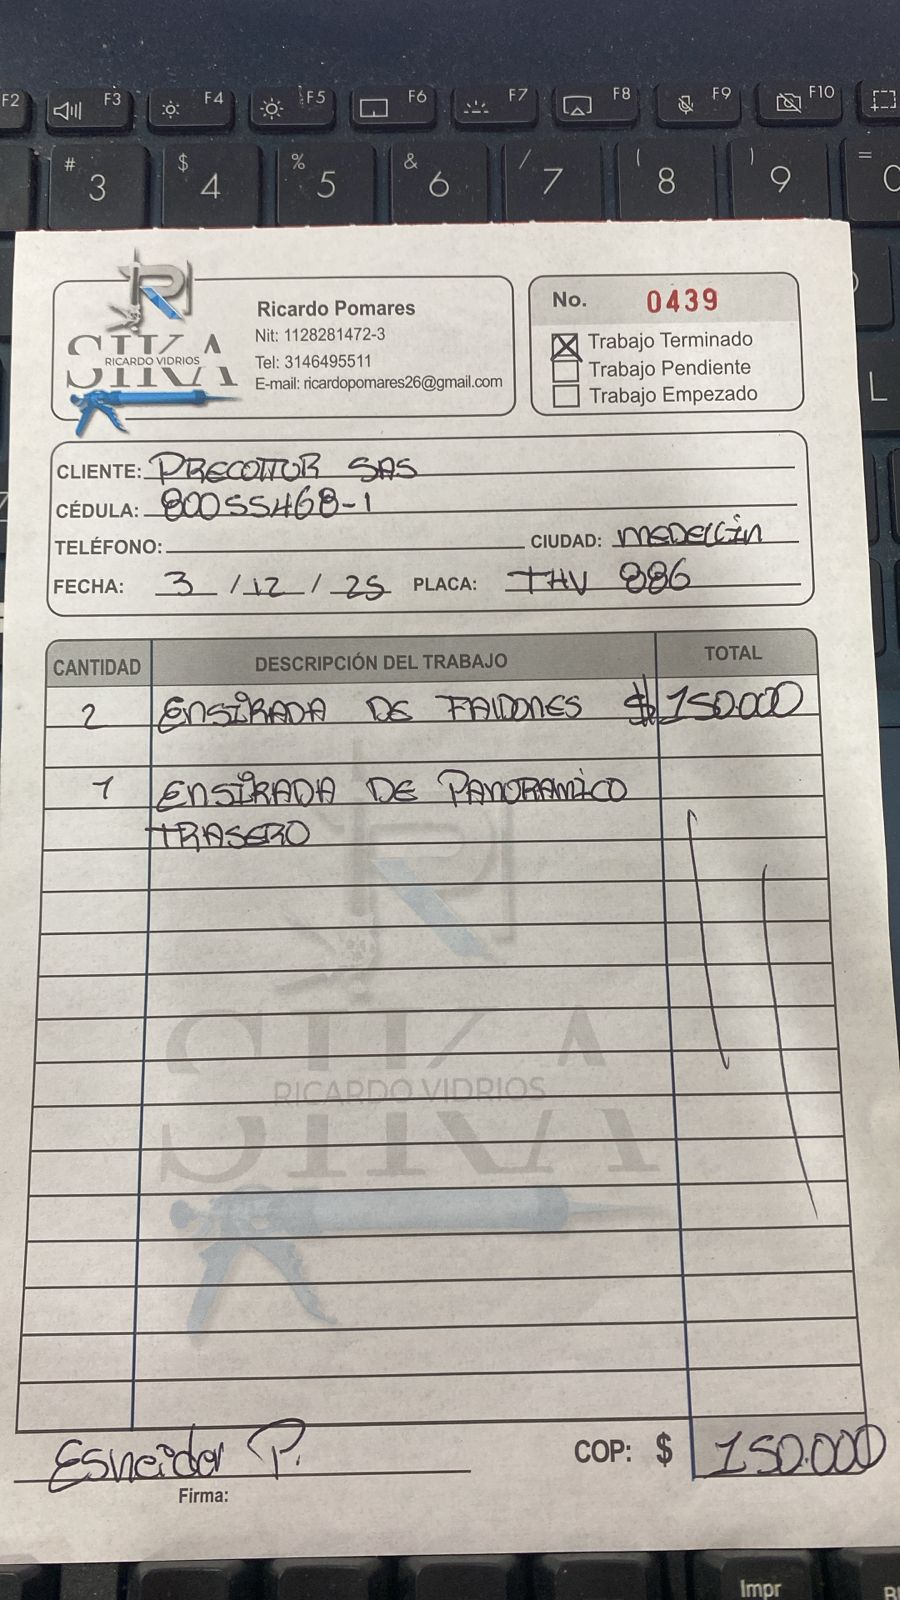 F2 F3 F4 F5 F6 F7 F8 F9 F10
# 3 $ 4 % 5 & 6 / 7 ( 8 ) 9 = 0
L
SIKA
RICARDO VIDRIOS
Ricardo Pomares
Nit: 1128281472-3
Tel: 3146495511
E-mail: ricardopomares26@gmail.com
No. 0439
Trabajo Terminado
Trabajo Pendiente
Trabajo Empezado
CLIENTE: PRECOTTUR SAS
CÉDULA: 80055468-1
TELÉFONO: CIUDAD: MEDELLIN
FECHA: 3 / 12 / 25 PLACA: THV 886
CANTIDAD DESCRIPCIÓN DEL TRABAJO TOTAL
2 ENSIRADA DE FALDONES $ 150.000
1 ENSIRADA DE PANORAMICO
TRASERO
SIKA
RICARDO VIDRIOS
Esneider P. COP: $ 150.000
Firma:
Impr